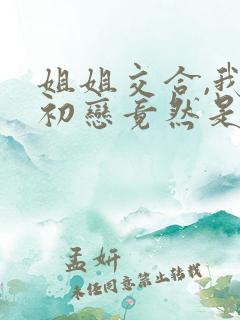 姐姐交合,我
初戀竟然是
孟妍
未径同意禁止转载